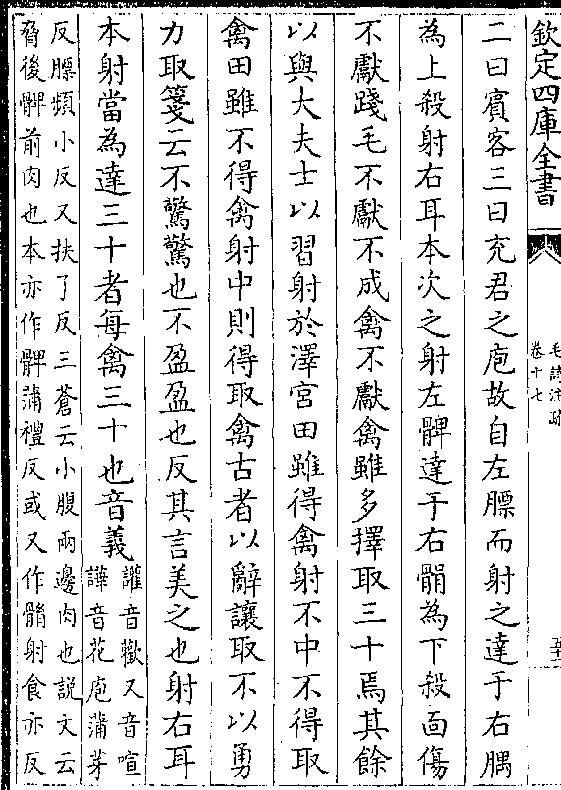 欽定四庫全書
毛詩注疏
卷十七
二曰賓客三曰充君之庖故自左膘而射之達于右腢
為上殺射右耳本次之射左髀達于右䯚為下殺面傷
不獻踐毛不獻不成禽不獻禽雖多擇取三十焉其餘
以與大夫士以習射於澤宮田雖得禽射不中不得取
禽田雖不得禽射中則得取禽古者以辭讓取不以勇
力取箋云不驚驚也不盈盈也反其言美之也射右耳
本射當為達三十者每禽三十也音義
讙音歡又音喧
譁音花庖蒲茅
反膘頻小反又扶了反三蒼云小腹兩邊肉也説文云
脅後髀前肉也本亦作髀蒲禮反或又作䯚射食亦反